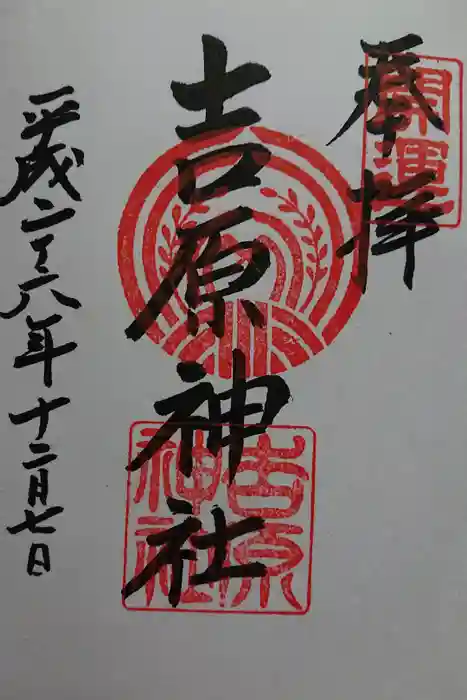 奉拝
開運
吉原神社
吉原
神社
平成二十六年十二月七日